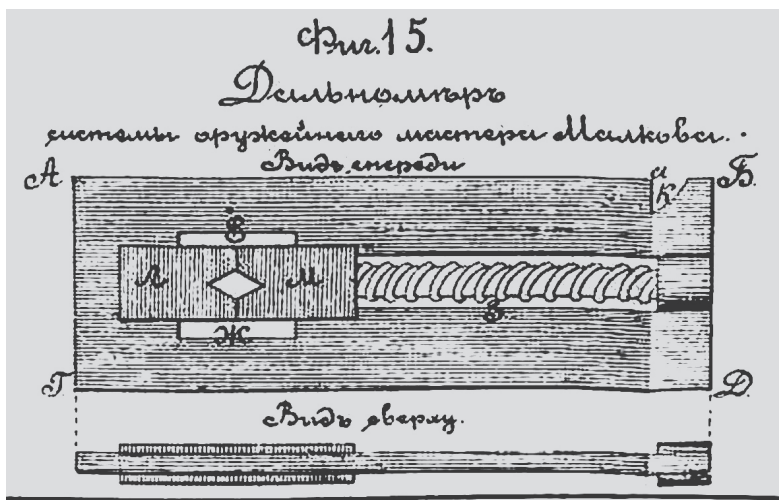 Фиг. 15.
Дальномѣръ
системы оружейнаго мастера Малкова.
Видъ спереди
А
а
К
Б
Л
М
Ж
Г
Д
Видъ сверху.